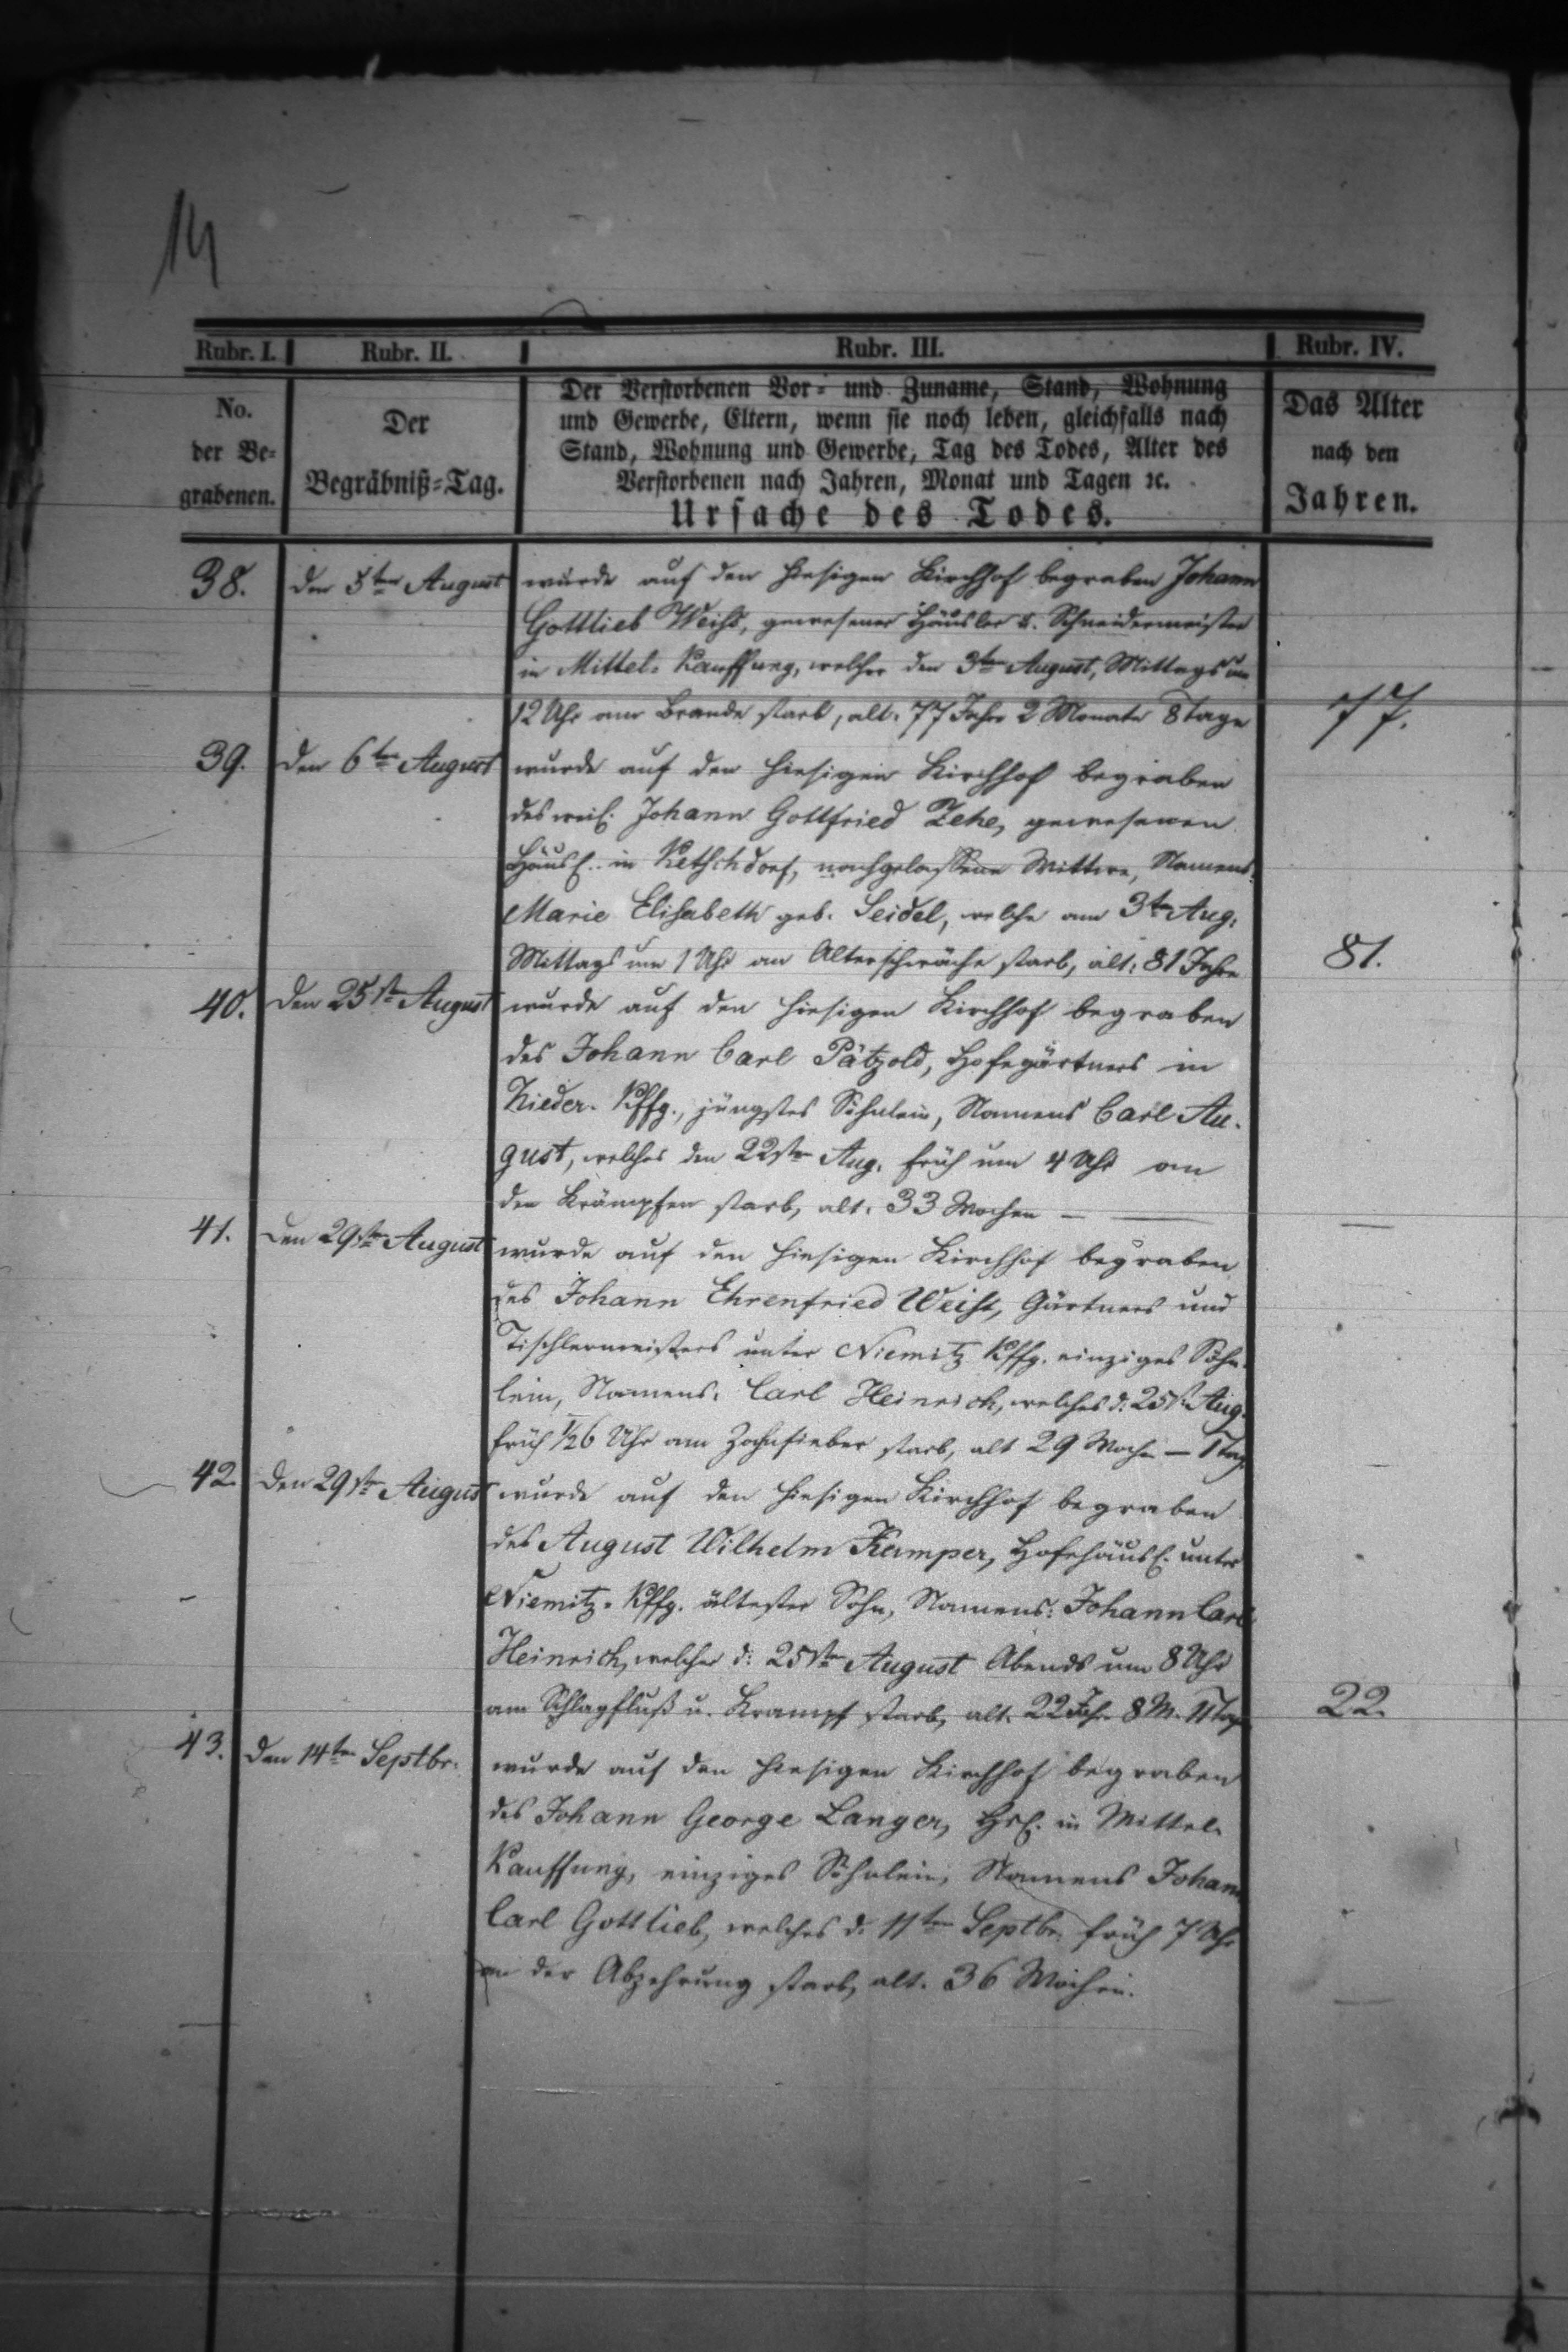 14
Rubr. I. Rubr. II. Rubr. III. Rubr. IV.
No. der Be-grabenen.
Der Begräbniß-Tag.
Der Verstorbenen Vor- und Zuname, Stand, Wohnung
und Gewerbe, Eltern, wenn sie noch leben, gleichfalls nach
Stand, Wohnung und Gewerbe, Tag des Todes, Alter des
Verstorbenen nach Jahren, Monat und Tagen ꝛc.
Ursache des Todes.
Das Alter
nach den
Jahren.
38. den 5ten August wurde auf den hiesigen Kirchhof begraben Johann
Gottlieb Weihs, gewesener Häusler u. Schneidermeister
in Mittel-Kauffung, welcher den 3ten August, Mittags um
12 Uhr am Brande starb, alt: 77 Jahr 2 Monate 8 Tage 77.
39. den 6ten August wurde auf den hiesigen Kirchhof begraben
des weil. Johann Gottfried Zehe, gewesenen
Häusl. in Ketschdorf, nachgelassene Wittwe, Namens:
Marie Elisabeth geb. Seidel, welche am 3ten Aug.
Mittags um 1 Uhr an Alterschwäche starb, alt: 81 Jahre 81.
40. den 25sten August wurde auf den hiesigen Kirchhof begraben
des Johann Carl Pätzold, Hofegärtners in
Nieder-Kffg., jüngstes Söhnlein, Namens Carl Au-
gust, welches den 22sten Aug. früh um 4 Uhr an
den Krämpfen starb, alt: 33 Wochen —
41. den 29sten August wurde auf den hiesigen Kirchhof begraben
des Johann Ehrenfried Weihs, Gärtners und
Tischlermeisters unter Niemitz Kffg. einziges Söhn-
lein, Namens: Carl Heinrich, welches d. 25st. Aug.
früh 1/2 6 Uhr am Zahnfieber starb, alt 29 Woche — 1 Tag
42. den 29sten August wurde auf den hiesigen Kirchhof begraben
des August Wilhelm Kemper, Hofehäusl. unter
Niemitz-Kffg. ältester Sohn, Namens: Johann Carl
Heinrich, welcher d: 25sten August Abends um 8 Uhr
am Schlagfluß u. Krampf starb, alt: 22 Jahr 8 M. 11 Tage 22.
43. den 14ten Septbr. wurde auf den hiesigen Kirchhof begraben
des Johann George Langer, Hsl. in Mittel-
Kauffung, einziges Söhnlein, Namens Johann
Carl Gottlieb, welches d. 11ten Septbr. früh 7 Uhr
an der Abzehrung starb, alt. 36 Wochen.